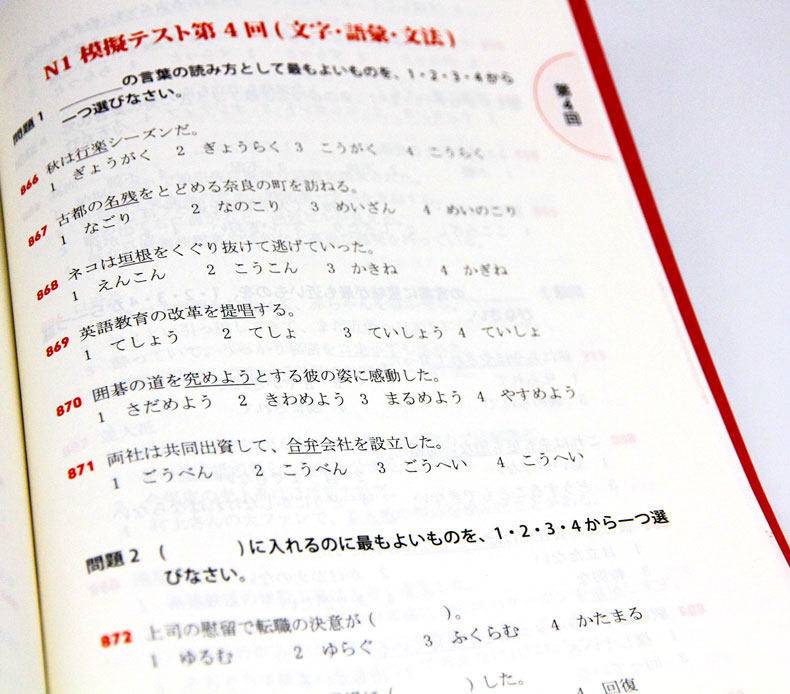 N1 模擬テスト第4回(文字・語彙・文法)
第4回
問題1 ＿＿＿の言葉の読み方として最もよいものを、1・2・3・4から
一つ選びなさい。
866 秋は行楽シーズンだ。
1 ぎょうがく 2 ぎょうらく 3 こうがく 4 こうらく
867 古都の名残をとどめる奈良の町を訪ねる。
1 なごり 2 なのこり 3 めいざん 4 めいのこり
868 ネコは垣根をくぐり抜けて逃げていった。
1 えんこん 2 こうこん 3 かきね 4 かぎね
869 英語教育の改革を提唱する。
1 てしょう 2 てしょ 3 ていしょう 4 ていしょ
870 囲碁の道を究めようとする彼の姿に感動した。
1 さだめよう 2 きわめよう 3 まるめよう 4 やすめよう
871 両社は共同出資して、合弁会社を設立した。
1 ごうべん 2 こうべん 3 ごうへい 4 こうへい
問題2 ( )に入れるのに最もよいものを、1・2・3・4から一つ選
びなさい。
872 上司の慰留で転職の決意が( )。
1 ゆるむ 2 ゆらぐ 3 ふくらむ 4 かたまる
( )した。
4 回復